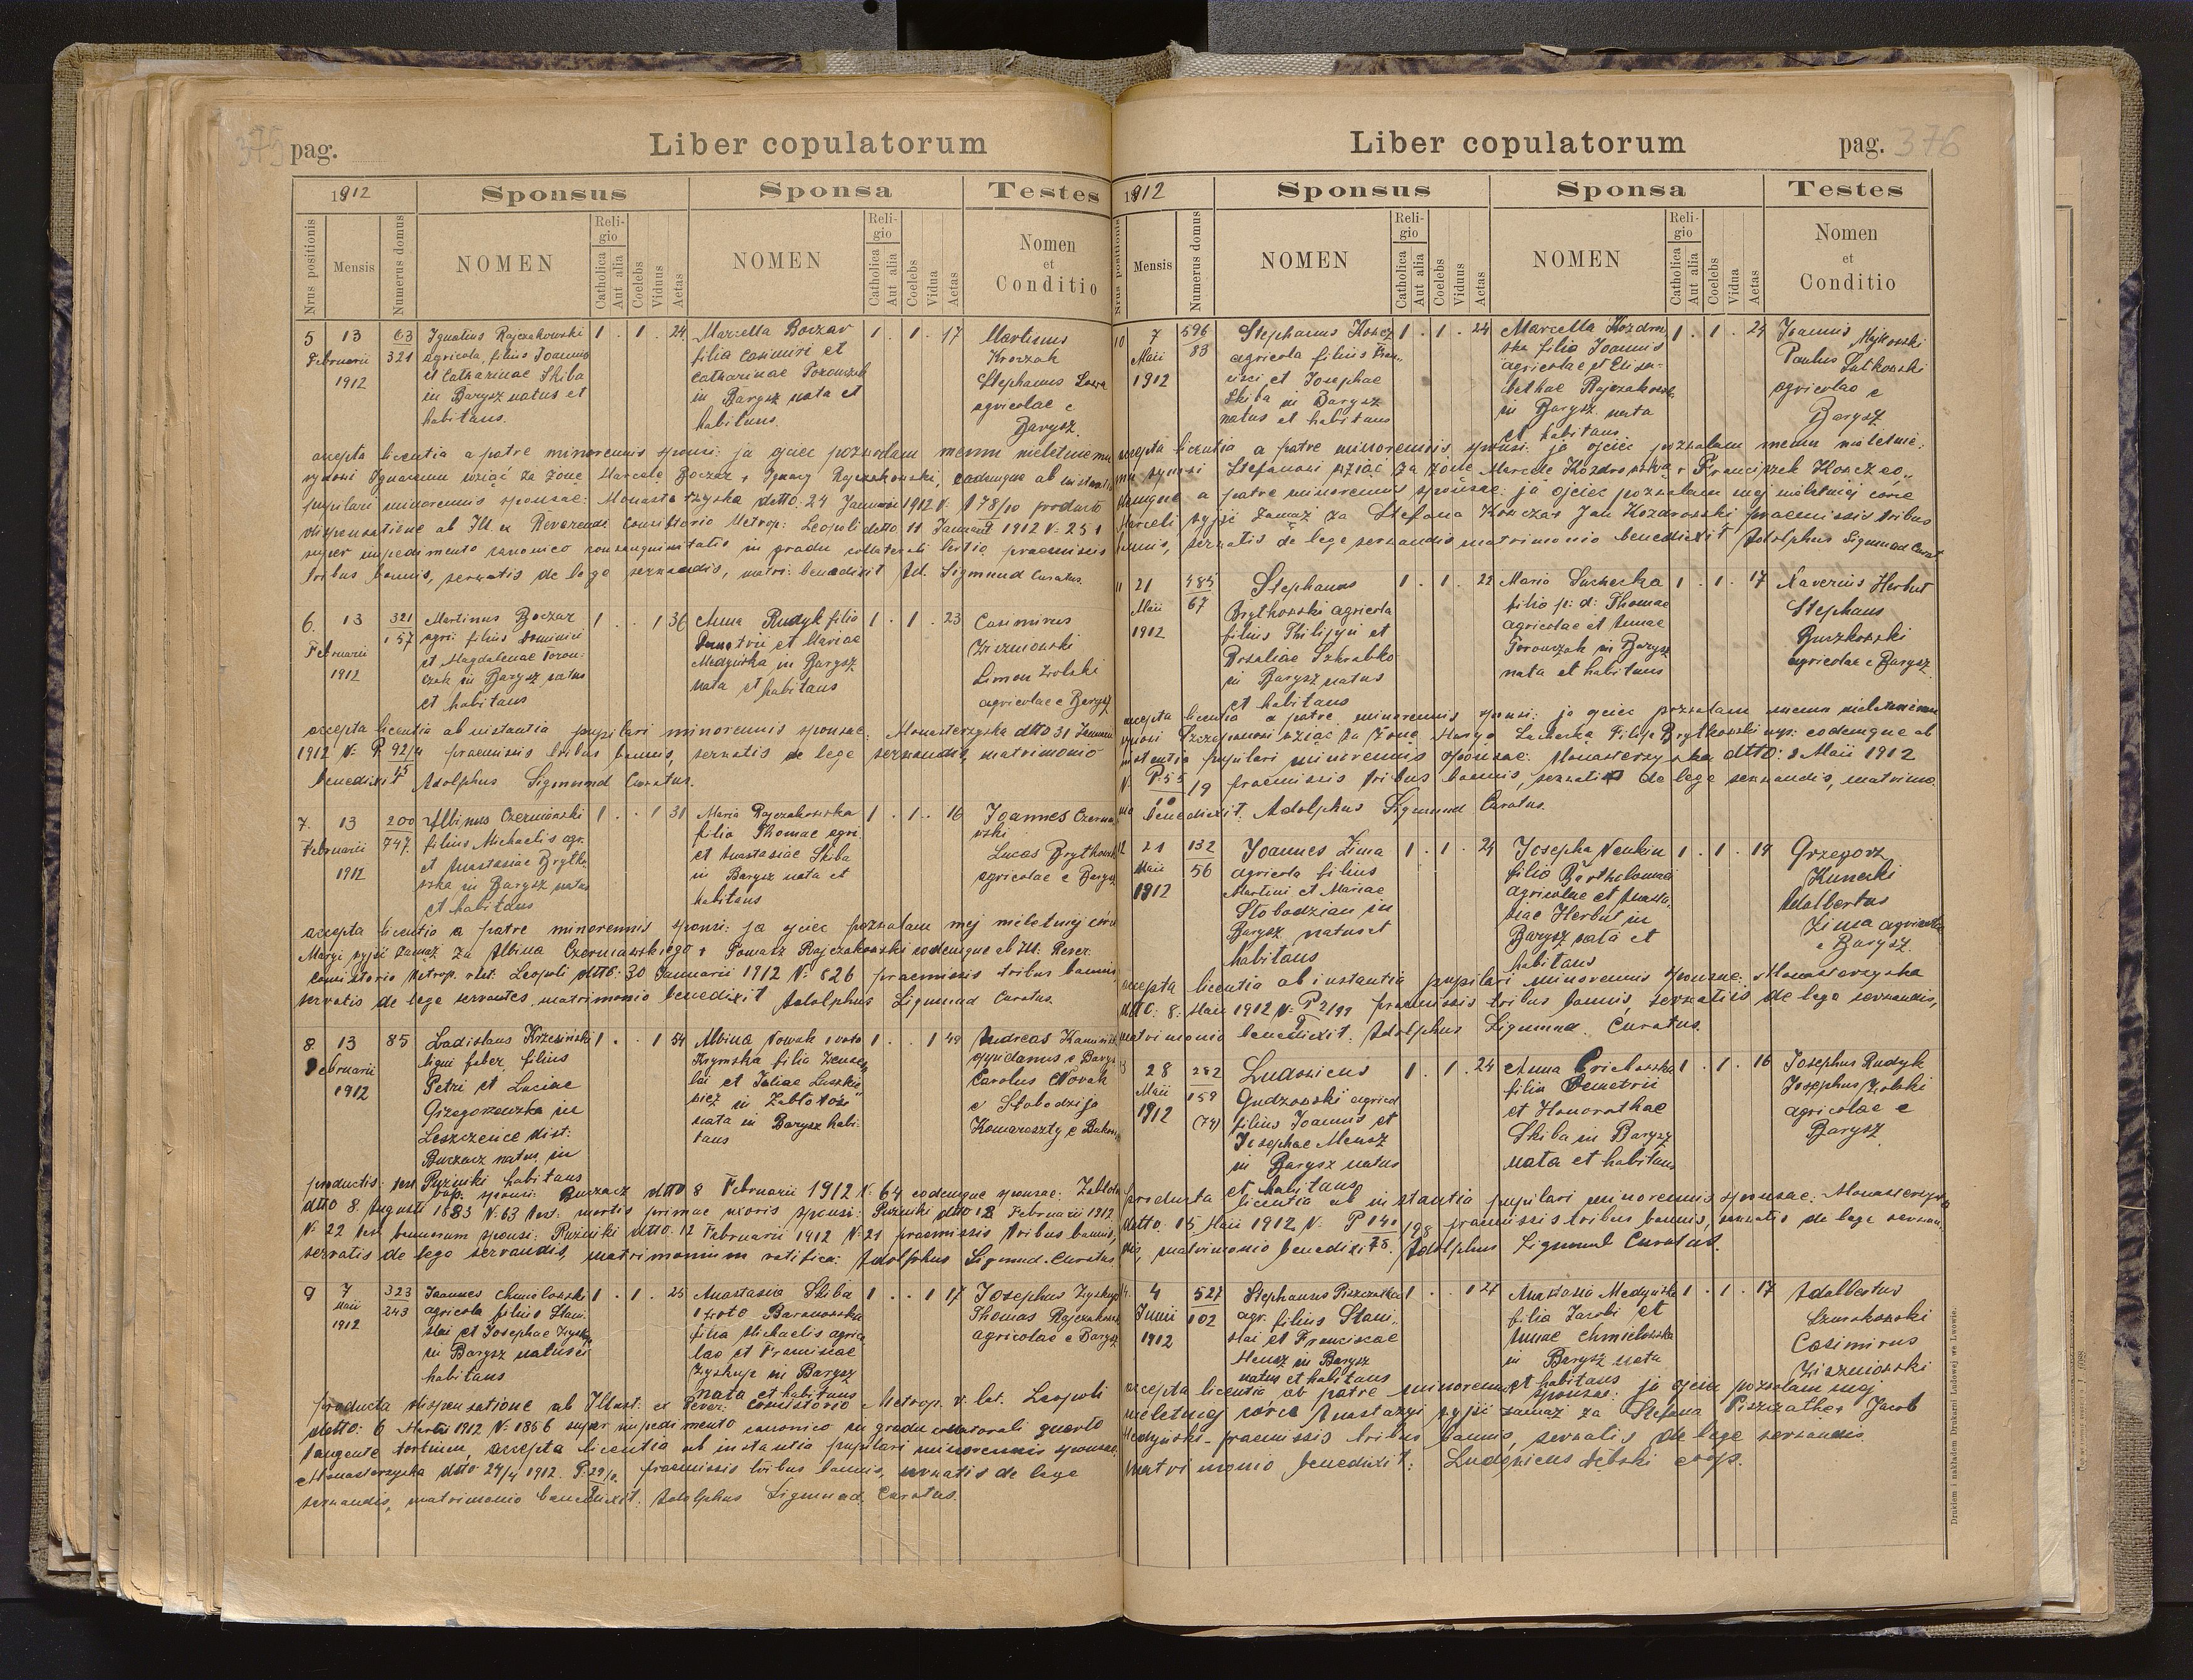 375 pag.
Liber copulatorum
1912
Sponsus
Sponsa
Testes
Nrus positionis
Mensis
Numerus domus
NOMEN
Religio
Catholica
Aut alia
Coelebs
Viduus
Aetas
NOMEN
Religio
Catholica
Aut alia
Coelebs
Vidua
Aetas
Nomen
et
Conditio
5 13 Februarii 1912
63
321
Ignatius Rajczakowski
agricola, filius Joannis
et Catharinae Skiba
in Barysz natus et
habitans.
1 . 1 . 24
Marcella Boczar
filia Casimiri et
Catharinae
in Barysz nata et
habitans.
1 . 1 . 17
Martinus
Kroczak
Stephanus
agricolae e
Barysz.
accepta licentia a patre minorennis sponsi: ja ojciec pozwalam memu nieletniemu
synowi Ignacemu wziąć za żonę Marcelę Boczar Ignacy Rajczakowski, eademque ab instantia
pupilari minorennis sponsae: Monasterzyska detto 24 Januarii 1912 N. P 78/10 producta
dispensatione ab Ill. et Reverend. Consistorio Metrop: Leopoli detto 11 Januarii 1912 N. 251
super impedimento canonico consanguinitatis in gradu collaterali tertio, praemissis
tribus bannis, servatis de lege servandis, matri: benedixit Ad. Sigmund Curatus.
6. 13 Februarii 1912
321
157
Martinus Boczar
agri. filius Dominici
et Magdalenae Toron-
czak in Barysz natus
et habitans
1 . . 1 36
Anna Rudyk filia
Demetrii et Mariae
Medyńska in Barysz
nata et habitans
1 . 1 . 23
Casimirus
Wiszniowski
Simon Wolski
agricolae e Barysz
accepta licentia ab instantia pupilari minorennis sponsae: Monasterzyska dtto 31 Januarii
1912 N. P 92/11 praemissis tribus bannis, servatis de lege servandis, matrimonio
15
benedixit Adolphus Sigmund Curatus.
7. 13 Februarii 1912
200
747
Albinus Czerniawski
filius Michaelis agr.
et Anastasiae Brytko-
wska in Barysz natus
et habitans
1 . . 1 31
Maria Rajczakowska
filia Thomae agri.
et Anastasiae Skiba
in Barysz nata et
habitans
1 . 1 . 16
Joannes Czernia-
wski
Lucas Brytkowski
agricolae e Barysz
accepta licentia a patre minorennis sponsi: ja ojciec pozwalam mej nieletniej córce
Maryi wyjść zamąż za Albina Czerniawskiego Tomasz Rajczakowski eodemque ab Ill: Rever.
Consistorio Metrop. r. lat. Leopoli dtto: 30 Januarii 1912 N. 826 praemissis tribus bannis
servatis de lege servantes, matrimonio benedixit Adolphus Sigmund Curatus.
8 13 Februarii 1912
85
Ladislaus Krzesiński
ligni faber, filius
Petri et Luciae
Grzegorzewska in
Leszczeńce dist:
Buczacz natus, in
Puzniki habitans
1 . . 1 54
Albina Nowak 1 voto
Krymska filia Wences-
lai et Juliae Laszkie-
wicz in Zabłotów
nata in Barysz habi-
tans
1 . . 1 49
Andreas
oppidanus e Barysz
Carolus Novak
e Słobodzija
Komaroszty e Bukow.
productis: test. bap. sponsi: Buczacz dtto 8 Februarii 1912 N. 64 eodemque sponsae: Zabłotów
dtto 8 Augusti 1883 N. 63 test. mortis primae uxoris sponsi: Puzniki dtto 12 Februarii 1912
N. 22 test bannorum sponsi: Puzniki dtto: 12 Februarii 1912 N. 21 praemissis tribus bannis,
servatis de lege servandis, matrimonium ratifica: Adolphus Sigmund. Curatus.
9 7 Maii 1912
323
243
Joannes Chmielowski
agricola filius Stani-
slai et Josephae
in Barysz natus et
habitans
1 . 1 . 25
Anastasia Skiba
1 voto Baranowska
filia Michaelis agrico-
lae et Franciscae
in Barysz
nata et habitans
1 . . 1 17
Josephus
Thomas Rajczakowski
agricolae e Barysz
producta dispensatione ab Illust. et Rever: Consistorio Metrop. r. lat. Leopoli
detto: 6 Martii 1912 N. 1856 super impedimento canonico in gradu collaterali quarto
tangente tertium, accepta licentia ab instantia pupilari minorennis sponsae
Monasterzyska dtto 24/4 1912. P. praemissis tribus bannis, servatis de lege
servandis, matrimonio benedixit: Adolphus Sigmund Curatus.
Liber copulatorum
pag. 376
1912
Sponsus
Sponsa
Testes
Nrus positionis
Mensis
Numerus domus
NOMEN
Religio
Catholica
Aut alia
Coelebs
Viduus
Aetas
NOMEN
Religio
Catholica
Aut alia
Coelebs
Vidua
Aetas
Nomen
et
Conditio
10 7 Maii 1912
596
83
Stephanus
agricola filius Fran-
cisci et Josephae
Skiba in Barysz
natus et habitans
1 . 1 . 24
Marcella Kozdrow-
ska filia Joannis
agricolae et Elisa-
bethae Rajczakowska
in Barysz nata
et habitans
1 . 1 . 24
Joannes
Paulus
agricolae e
Barysz
accepta licentia a patre minorennis sponsi: ja ojciec pozwalam memu nieletnie-
mu synowi Stefanowi wziąć za żonę Marcelę Kozdrowską Franciszek
a patre minorennis sponsae: ja ojciec pozwalam mej nieletniej córce
Marceli wyjść zamąż za Stefana Jan Kozdrowski praemissis tribus
bannis, servatis de lege servandis matrimonio benedixit Adolphus Sigmund Curat
11 21 Maii 1912
485
67
Stephanus
Brytkowski agricola
filius Philippi et
Rosaliae Szkrabko
in Barysz natus
et habitans
1 . 1 . 22
Maria Suchecka
filia p: d: Thomae
agricolae et Annae
Toronczak in Barysz
nata et habitans
1 . 1 . 17
Xaverius Herbut
Stephanus
Buszkowski
agricolae e Barysz
accepta licentia a patre minorennis sponsi: ja ojciec pozwalam memu nieletniemu
synowi Szczepanowi wziąć za żonę Maryę Suchecką Filip Brytkowski eodemque ab
instantia pupilari minorennis sponsae: Monasterzyska dtto: 2 Maii 1912
N. P. 55/10 19 praemissis tribus bannis, servatis de lege servandis, matrimo-
nio benedixit. Adolphus Sigmund Curatus.
12 21 Maii 1912
132
56
Joannes Zima
agricola filius
Martini et Mariae
Słobodzian in
Barysz natus et
habitans
1 . 1 . 24
Josepha
filia Bartholomaei
agricolae et Anasta-
siae Herbut in
Barysz nata et
habitans
1 . 1 . 19
Grzegorz
Kunecki
Adalbertus
Zima agricolae
e Barysz.
accepta licentia ab instantia pupilari minorennis sponsae: Monasterzyska
dtto: 8. Maii 1912 N. P praemissis tribus bannis, servatis de lege servandis,
matrimonio benedixit: Adolphus Sigmund. Curatus.
13 28 Maii 1912
242
159
(74)
Ludovicus
Gudzowski agricol
filius Joannis et
Josephae Mensz
in Barysz natus
et habitans
1 . 1 . 24
Anna
filia Demetrii
et Honorathae
Skiba in Barysz
nata et habitans
1 . 1 . 16
Josephus Rudyk
Josephus Wolski
agricolae e
Barysz
producta licentia ab instantia pupilari minorennis sponsae: Monasterzyska
detto: 15 Maii 1912 N. P praemissis tribus bannis, servatis de lege servan-
dis, matrimonio benedixit. Adolphus Sigmund Curatus.
14. 4 Junii 1912
527
102
Stephanus
agr. filius Stani-
slai et Franciscae
Mensz in Barysz
natus et habitans
1 . . 1 27
Anastasia Medyńska
filia Jacobi et
Annae Chmielowska
in Barysz nata
et habitans
1 . 1 . 17
Adalbertus
Casimirus
Wiszniowski
accepta licentia ab patre minorennis sponsae: ja ojciec pozwalam mej
nieletniej córce Anastazyi wyjść zamąż za Stefana Jacob
Medyński- praemissis tribus bannis, servatis de lege servandis
matrimonio benedixit: Ludovicus Dębski coop.
Drukiem i nakładem Drukarni Ludowej we Lwowie.